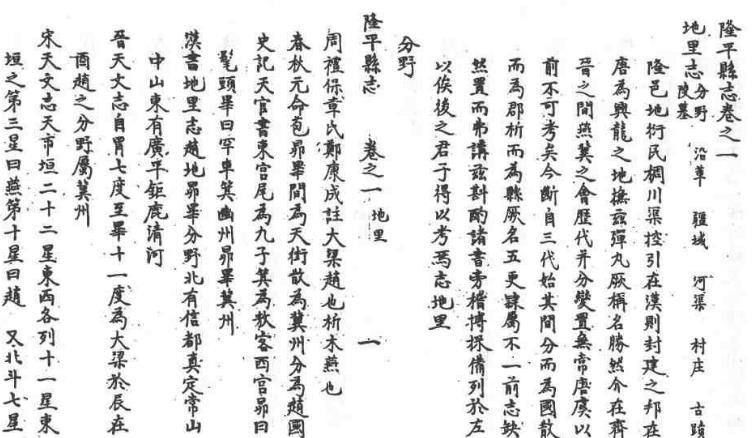 隆平縣志卷之一
地里志 分野 沿革 疆域 河渠 村庄 古蹟
陵墓
隆邑地衍民稠川渠控引在漢則封建之邦在
唐為興龍之地撫茲彈丸厥稱名勝然介在齊
晉之間燕冀之會歷代并分變置無常唐虞以
前不可考矣今斷自三代始其間分而為國散
而為郡析而為縣厥名五更隸屬不一前志缺
然置而弗講茲斟酌諸書旁稽博採備列於左
以俟後之君子得以考焉志地里
分野
隆平縣志 卷之一 地里 一
周禮保章氏鄭康成註大梁趙也析木燕也
春秋元命苞昴畢間為天街散為冀州分為趙國
史記天官書東宮尾為九子箕為敖客西宮昴曰
髦頭畢曰罕車箕幽州昴畢冀州
漢書地里志趙地昴畢分野北有信都真定常山
中山東有廣平鉅鹿清河
晉天文志自胃七度至畢十一度為大梁於辰在
酉趙之分野屬冀州
宋天文志天市垣二十二星東西各列十一星東
垣之第三星曰燕第十星曰趙 又北斗七星